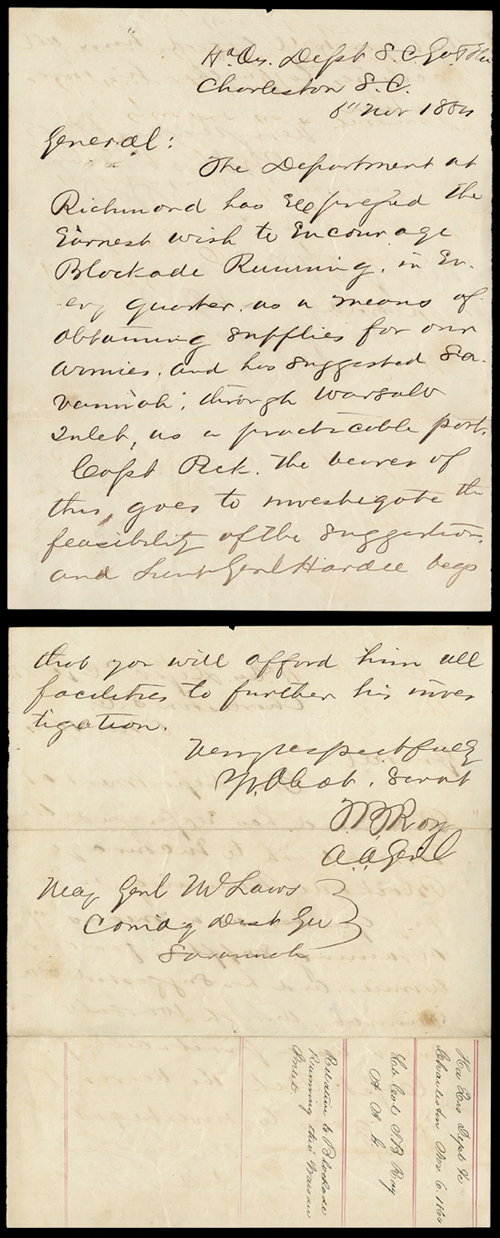 Hd Qrs. Dept S. C. Ga & Fla
Charleston S. C.
6th Nov 1864
General:
The Department at
Richmond has Expressed the
Earnest wish to Encourage
Blockade Running, in Ev-
ery quarter, as a means of
obtaining supplies for our
armies, and has suggested Sa-
vannah, through Warsaw
Inlet, as a practicable port.
Capt Peck. the bearer of
this, goes to investigate the
feasibility of the suggestion,
and Lieut Genl Hardee begs
that you will afford him all
facilities to further his inves
tigation.
Very respectfully
Yr Obdt. Servt
T. B. Roy
A. A. Genl
Maj Genl McLaws
Comdg Dist Ga
Savannah
Hd Qrs Dept &c
Charleston Nov 6. 1864
Lt. Col. T B Roy
A. A. G.
Relative to Blockade
Running thro' Warsaw
Inlet.